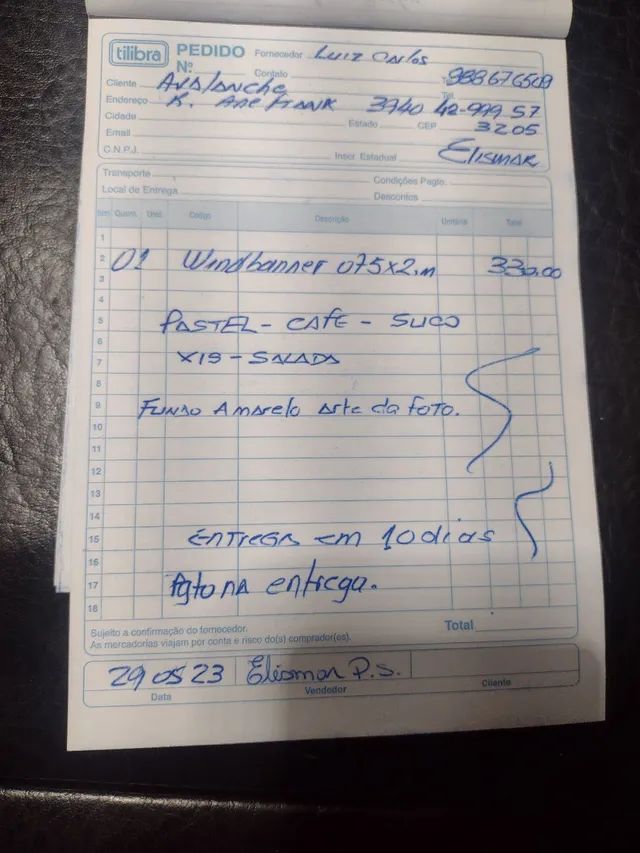 tilibra PEDIDO Fornecedor Luiz Carlos
Nº Contato 988676509
Cliente Avalanche Tel.
Endereço R. Ane Frank 3940 42-999 57
Cidade Estado CEP 3205
Email Elismar
C.N.P.J. Inscr. Estadual
Transporte Condições Pagto.
Local de Entrega Descontos
Item Quant. Unid. Código Descrição Unitário Total
1
2 01 Windbanner 075x2.m 330,00
3
4
5 PASTEL - CAFE - SUCO
6
7 XIS - SALADA
8
9 Fundo Amarelo Arte da FOTO.
10
11
12
13
14
15 ENTREGA em 10 dias
16
17 Pgto NA entrega.
18
Sujeito a confirmação do fornecedor. Total
As mercadorias viajam por conta e risco do(s) comprador(es).
29 05 23 Elismar P.S.
Data Vendedor Cliente